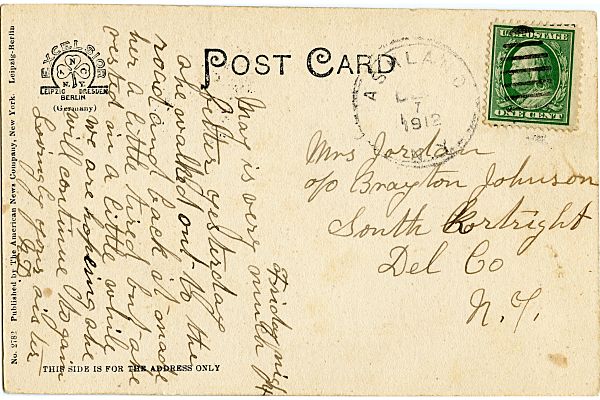 POST CARD
EXCELSIOR
A N C
N.Y.
LEIPZIG DRESDEN
BERLIN
(Germany)
No. 2782 Published by The American News Company, New York. Leipzig-Berlin
THIS SIDE IS FOR THE ADDRESS ONLY
ASHLAND
7
1912
N.Y.
U.S. POSTAGE
ONE CENT
Mrs Jordan
c/o Brayton Johnson
South Kortright
Del Co
N. Y.
Friday night
May is very much
better yesterday
she walked out to the
road and back it made
her a little tired but she
rested in a little while
we are hoping she
will continue to gain
Lovingly your sister